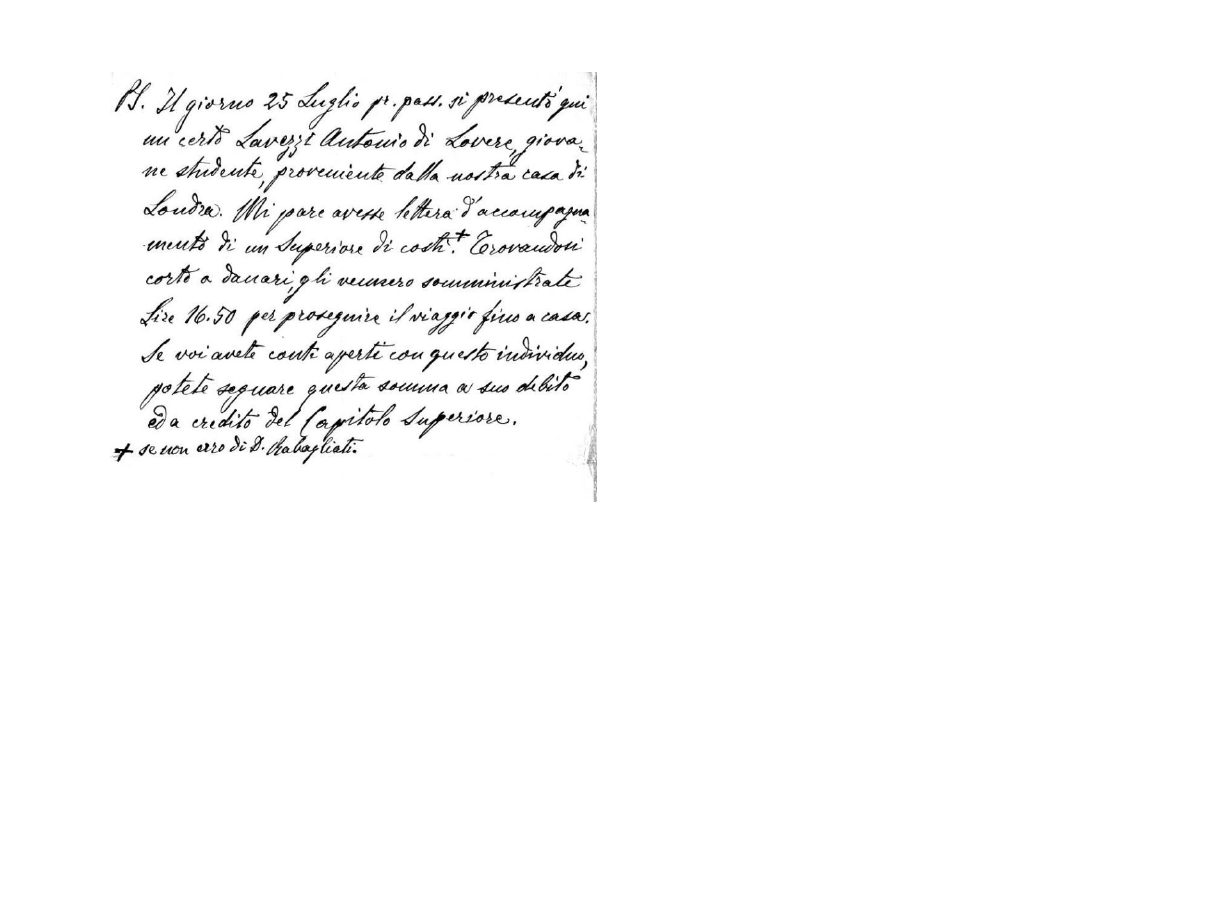 PS. Il giorno 25 Luglio pr. pass. si presentò qui
un certo Lavezzi Antonio di Lovere, giova-
ne studente, proveniente dalla nostra casa di
Londra. Mi pare avesse lettera d'accompagna
mento di un Superiore di costì.+ Trovandosi
corto a danari, gli vennero somministrate
Lire 16.50 per proseguire il viaggio fino a casa.
Se voi avete conti aperti con questo individuo,
potete segnare questa somma a suo debito
ed a credito del Capitolo Superiore.
+ se non erro di D. Rabagliati.